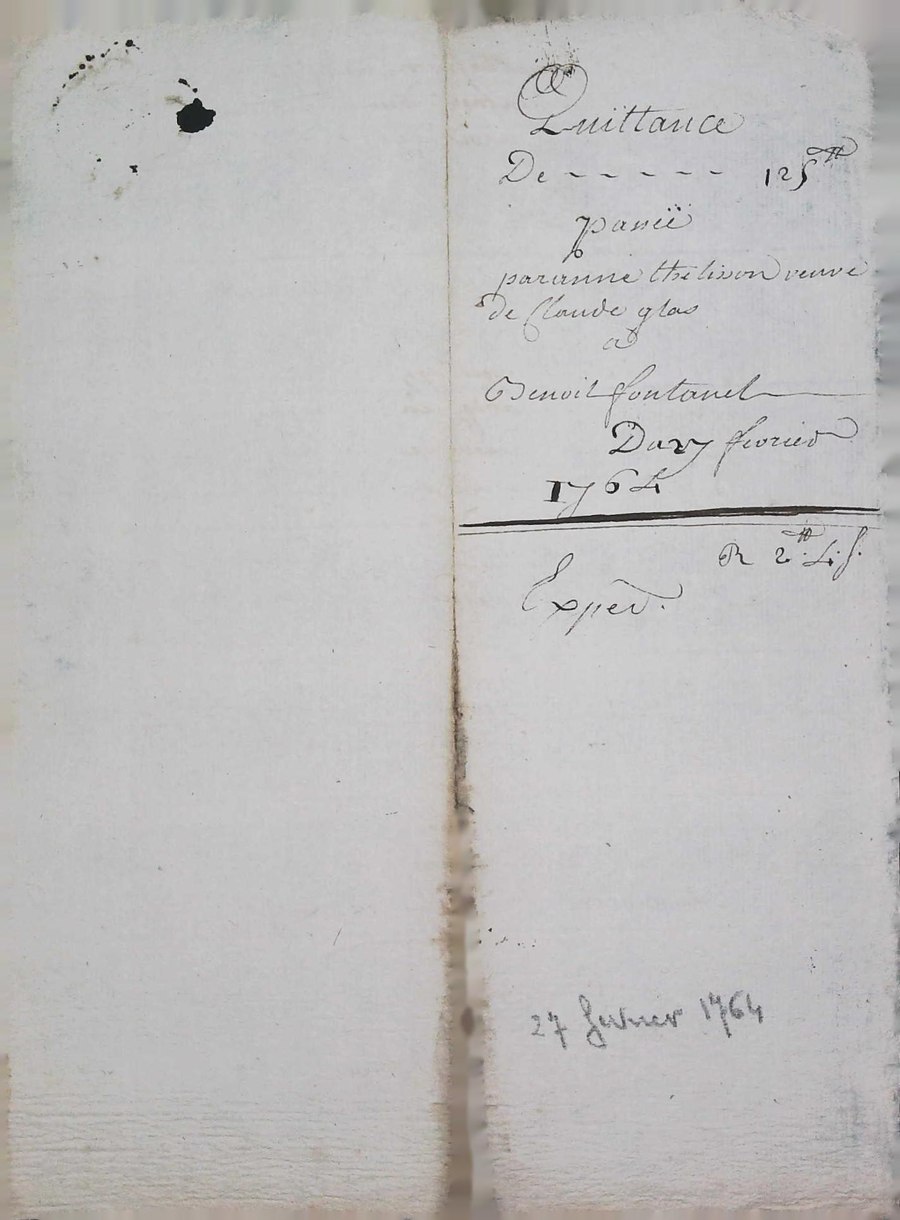 Quittance
De - - - - - 125 ₶
passéë
par anne thelison veuve
de Claude glas
a
Benoit fontanel
Du 27 fevrier
1764
R 2 ₶ 4 s.
Exped.
27 fevrier 1764